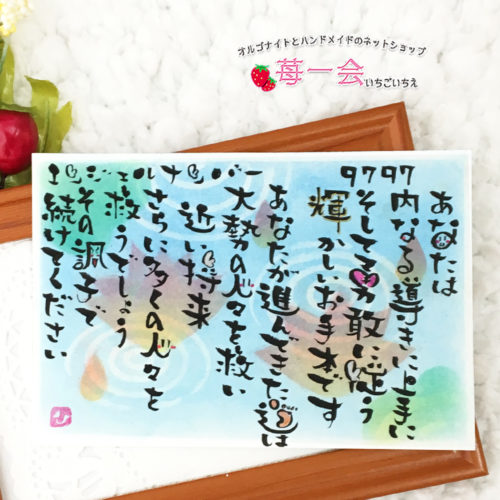 オルゴナイトとハンドメイドのネットショップ
苺一会
いちごいちえ
エンジェルナンバー 9797
あなたは
内なる導きに上手に
そして勇敢に従う
輝かしいお手本です
あなたが進んできた道は
大勢の人々を救い
近い将来
さらに多くの人々を
救うでしょう
その調子で
続けてください